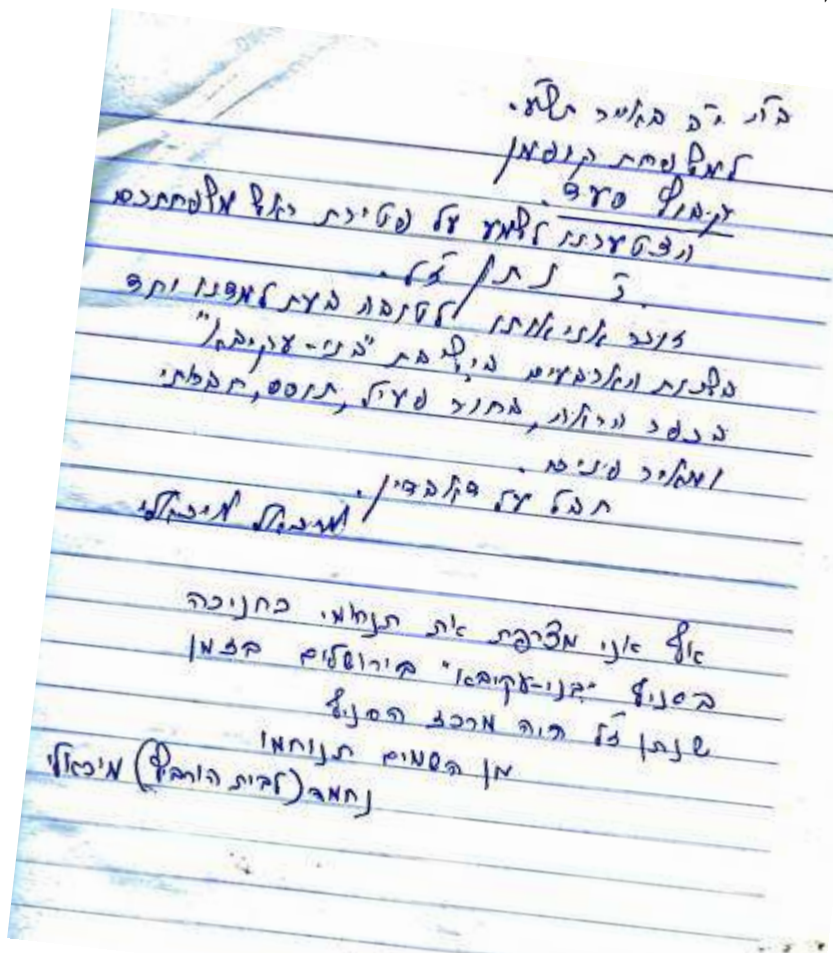 ב"ה י"ב באייר תשע.
למשפחת קופמן
קיבוץ סעד.
הצטערתי לשמוע על פטירת ראש משפחתכם
ר' נתן ז"ל.
זוכר אני אותו לטובה בעת למדנו יחד
בשנות הארבעים בישיבת "בני-עקיבא"
בכפר הרואה, בחור פעיל, תוסס, חברותי
ומאיר פנים.
חבל על דאבדין.
מיכאל מיכאלי
אף אני מצרפת את תנחומי כחניכה
בסניף "בני-עקיבא" בירושלים בזמן
שנתן ז"ל היה מרכז הסניף
מן השמים תנוחמו
נחמה (לבית הורביץ) מיכאלי